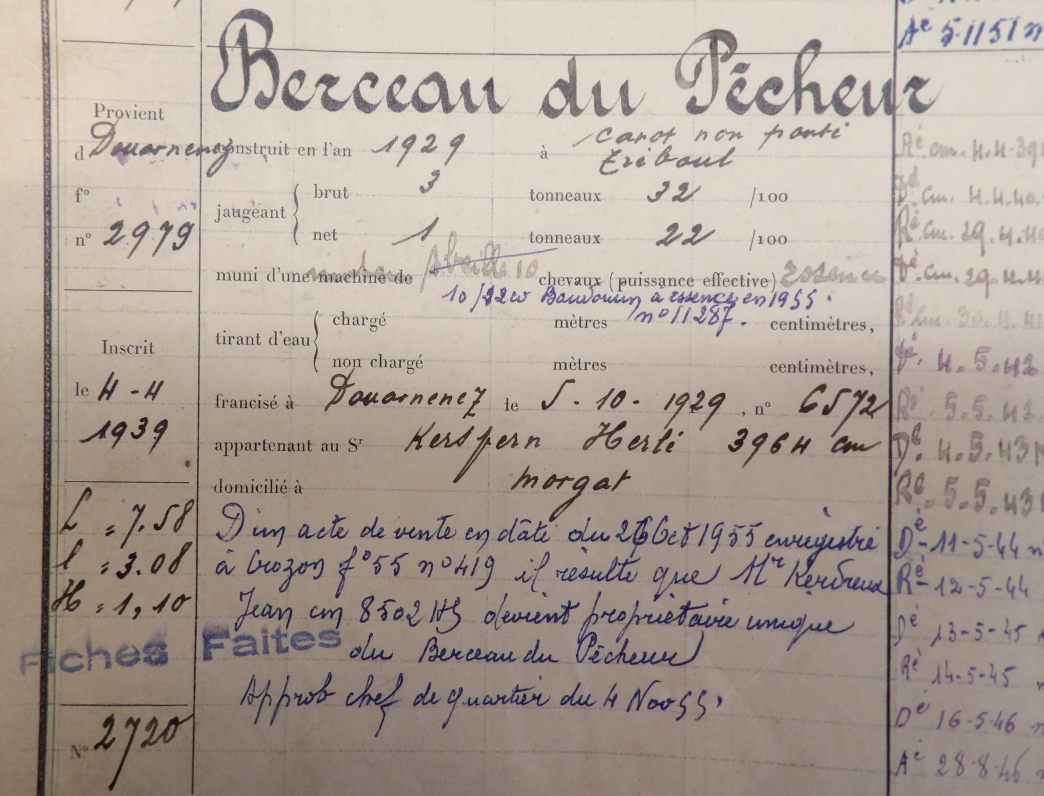 Berceau du Pêcheur
Provient
d Douarnenez
f°
n° 2979
Inscrit
le 4-4
1939
L = 7.58
l = 3.08
H = 1,10
Fiches Faites
N° 2720
construit en l'an 1929 à canot non ponté
Tréboul
jaugeant { brut 3 tonneaux 32 /100
net 1 tonneaux 22 /100
muni d'une machine de Abeille 10 chevaux (puissance effective) essence
10/22 cv Baudouin à essence en 1955.
n° 11287.
tirant d'eau { chargé mètres centimètres,
non chargé mètres centimètres,
francisé à Douarnenez le 5-10-1929, n° 6572
appartenant au Sr Kerspern Herlé 3964 cm
domicilié à morgat
D'un acte de vente en dâte du 26 Oct 1955 enregistré
à Crozon f° 55 n° 419 il résulte que Mr Kerdreux
Jean cm 8502 HS devient propriétaire unique
du Berceau du Pêcheur
Approb chef de quartier du 4 Nov 55.
Aé 5.11 51 n
Ré cm. 4.4.39
Dé cm. 4.4.40
Ré cm. 29.4.40
Dé cm. 29.4.41
Ré cm. 30.4.41
Dé. 4.5.42
Ré 5.5.43
Dé. 4.5.43
Ré. 5.5.43
Dé-11-5-44 n
Ré-12-5-44
Dé 13-5-45
Ré 14-5-45
Dé 16-5-46 n
Aé 28-8-46 n